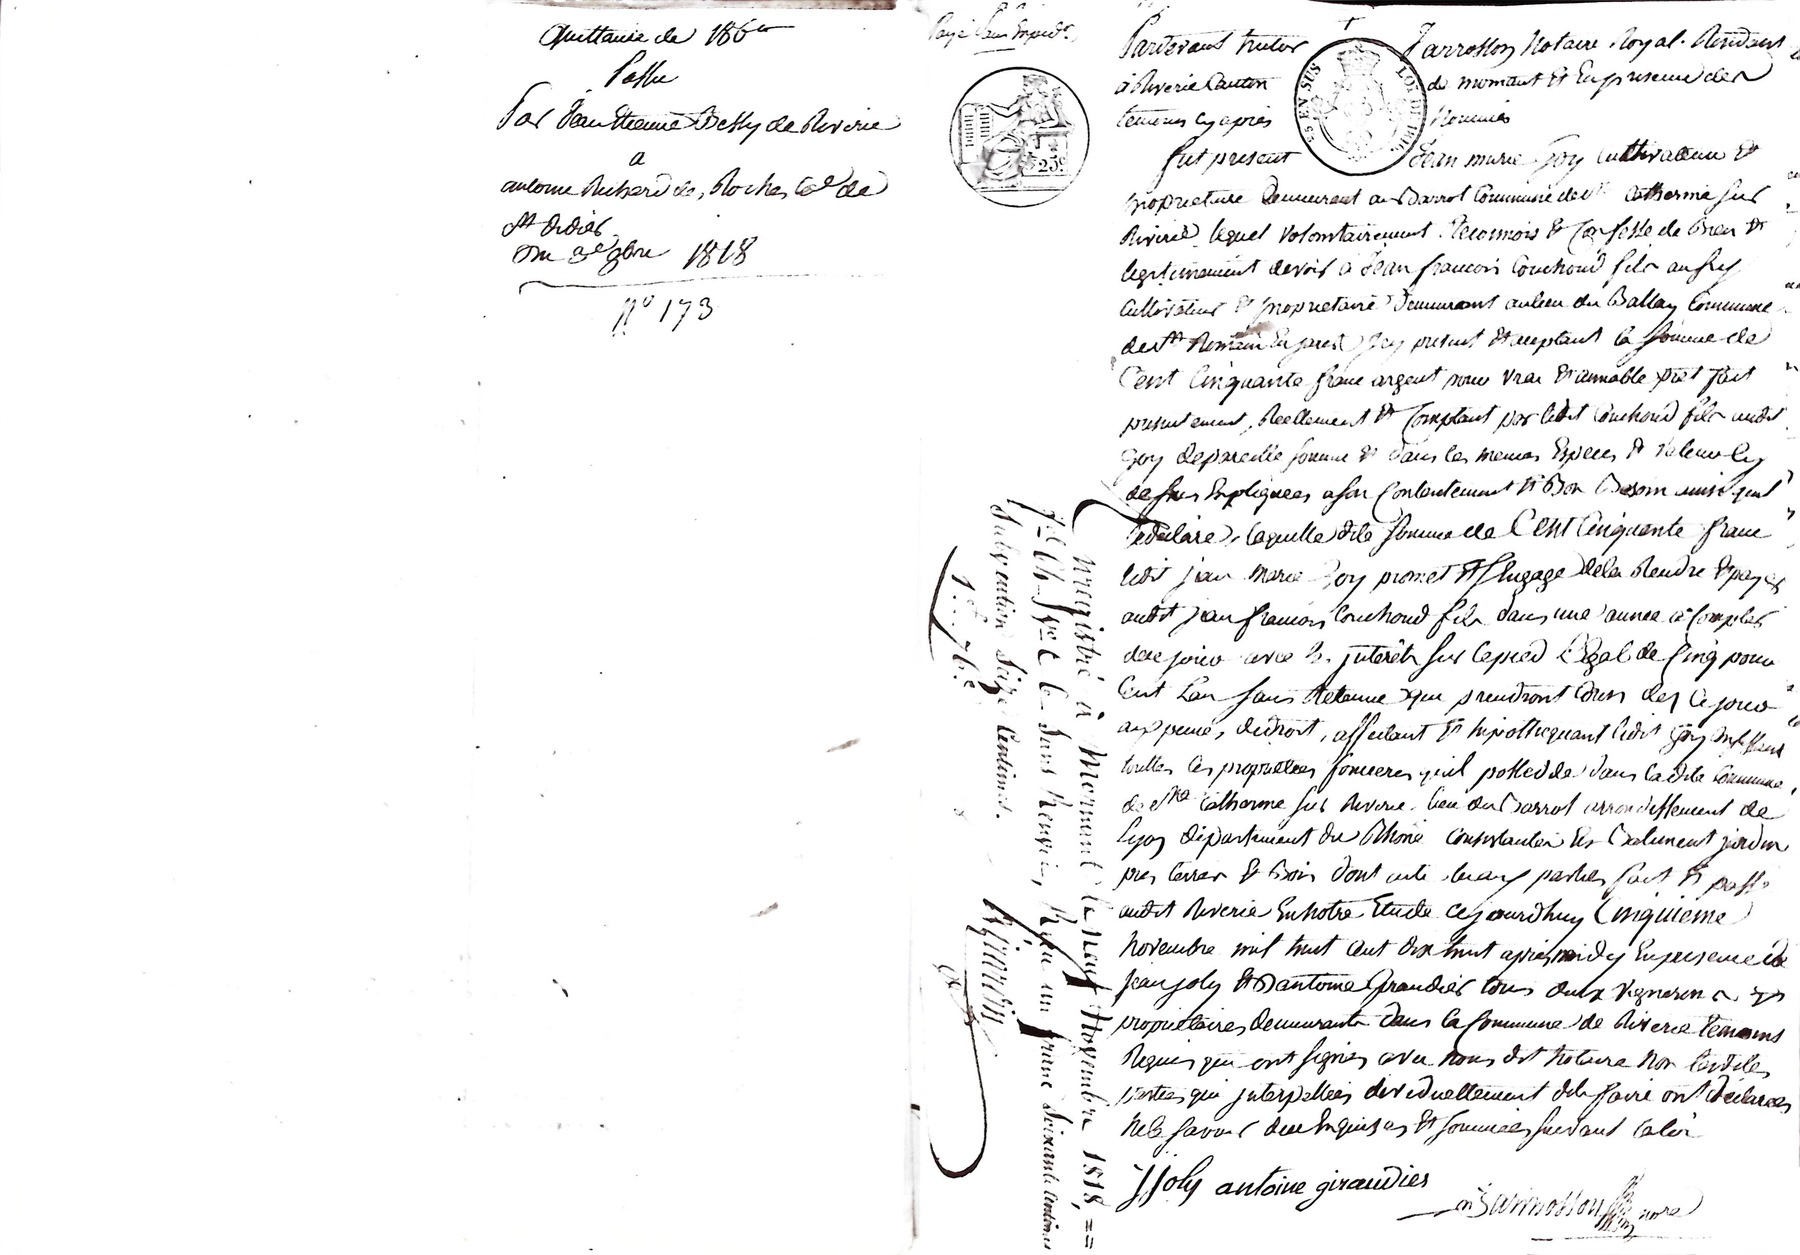 Quittance de 186 
Passé
Par Jean Etienne Bessy de Riverie
a
antoine Richard des Roches Cne de
St Didier
Du 3e 9bre 1818
N° 173
Payé Sans Expedon
Pardevant Notaire Jarrosson Notaire Royal Résidant
à Riverie Canton de mornant Et En presence des
temoins cy après Nommés
fut present Jean marie Goy Cultivateur Et
proprietaire Demeurant au Barrot Commune de Ste Catherine Sur
Riverie, lequel volontairement Reconnois Et Confesse de bien Et
legitimement devoir à Jean françois Couchoud fils aussy
Cultivateur Et proprietaire Demeurant au lieu du Ballay Commune
de St Romain En jarest Icy present Et acceptant la Somme de
Cent Cinquante franc argent pour vrai Et aimable prêt fait
presentement, Réellement Et Comptant par ledit Couchoud fils audit
Goy de pareille somme Et dans les memes Especes Et valeur Cy
dessus Expliquées a son Contentement Et Bon Besoin ainsi quil
le déclare, laquelle dite somme de Cent Cinquante franc
ledit jean Marie Goy promet Et S'engage de la Rendre Et payer
audit jean francois Couchoud fils dans une année à Compter
de ce jour avec les jnterêts Sur le pied Légal de Cinq pour
Cent L'an Sans Retenue qui prendront Cours des Ce jour
aux peines de droit, affectant Et hipothequant ledit Goy
touttes les proprietées foncieres qu'il possede dans ladite Commune
de Ste Catherine Sur Riverie lieu du Barrot arrondissement de
Lyon département du Rhône Consistantes En Batiment jardin
prés terres Et Bois dont acte aux parties fait Et passé
audit Riverie En Notre Etude Cejourdhuy Cinquieme
Novembre mil huit cent dix huit après midy En presence de
Jean Joly Et D'antoine Giraudier tous deux vignerons Et
proprietaires demeurants dans la Commune de Riverie temoins
Requis qui ont signés avec Nous dit Notaire Non lesdites
parties qui jnterpellées dividuellement de le faire ont déclarées
Ne le Savoir de ce Enquises Et sommées suivant la loi
JJoly antoine giraudier
Jarrosson nore
25 EN SUS
25c
Enregistré à Mornant le neuf Novembre 1818,
fol. Ve C. Sans Renvoi, Reçu un franc Soixante Centimes
Subvention Seize Centimes.
1f..76c